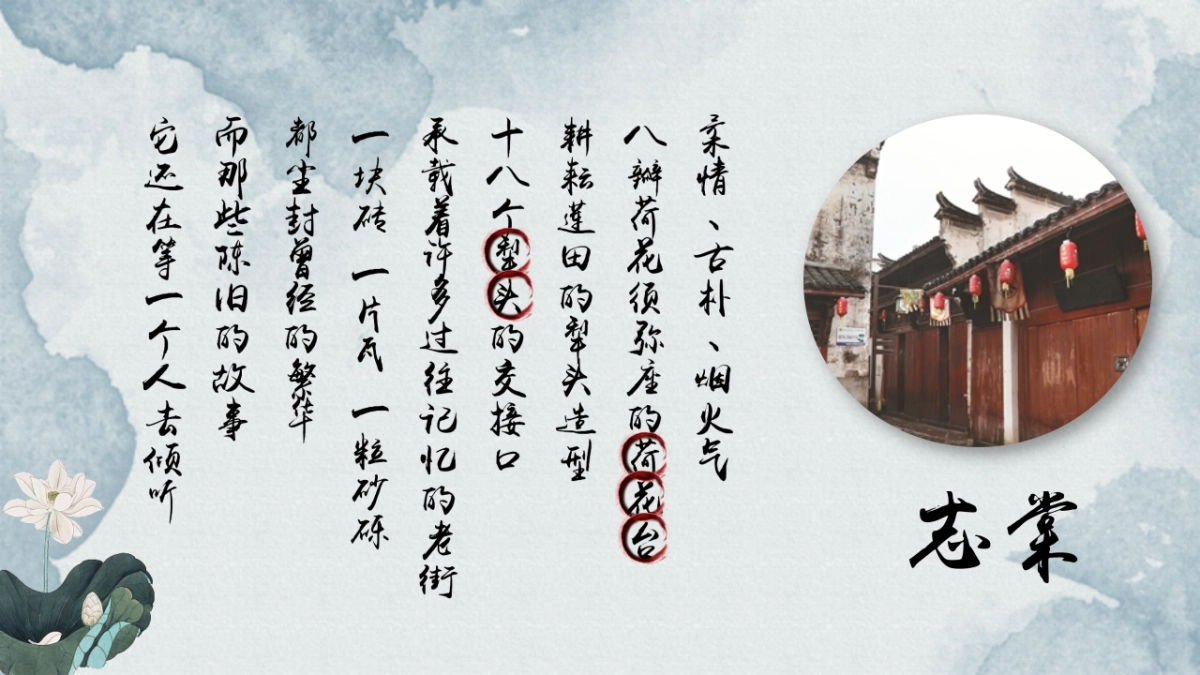 柔情、古朴、烟火气
八瓣荷花须弥座的荷花台
耕耘莲田的犁头造型
十八个犁头的交接口
承载着许多过往记忆的老街
一块砖 一片瓦 一粒砂砾
都尘封曾经的繁华
而那些陈旧的故事
它还在等一个人去倾听
志棠